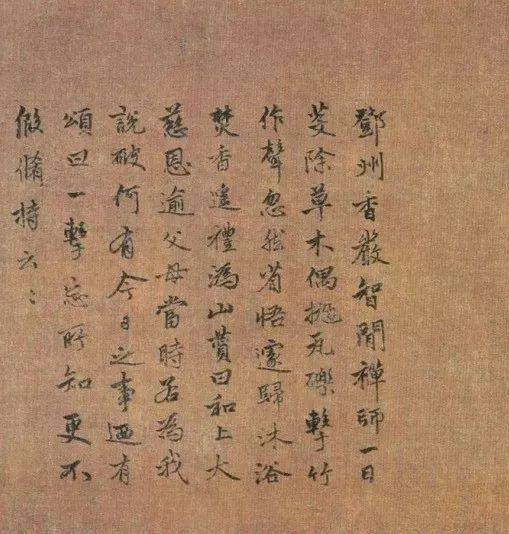 鄧州香嚴智閑禪師一日
芟除草木偶抛瓦礫擊竹
作聲忽然省悟遽歸沐浴
焚香遙禮溈山贊曰和上大
慈恩逾父母當時若為我
說破何有今日之事迺有
頌曰一擊忘所知更不
假脩持云〻